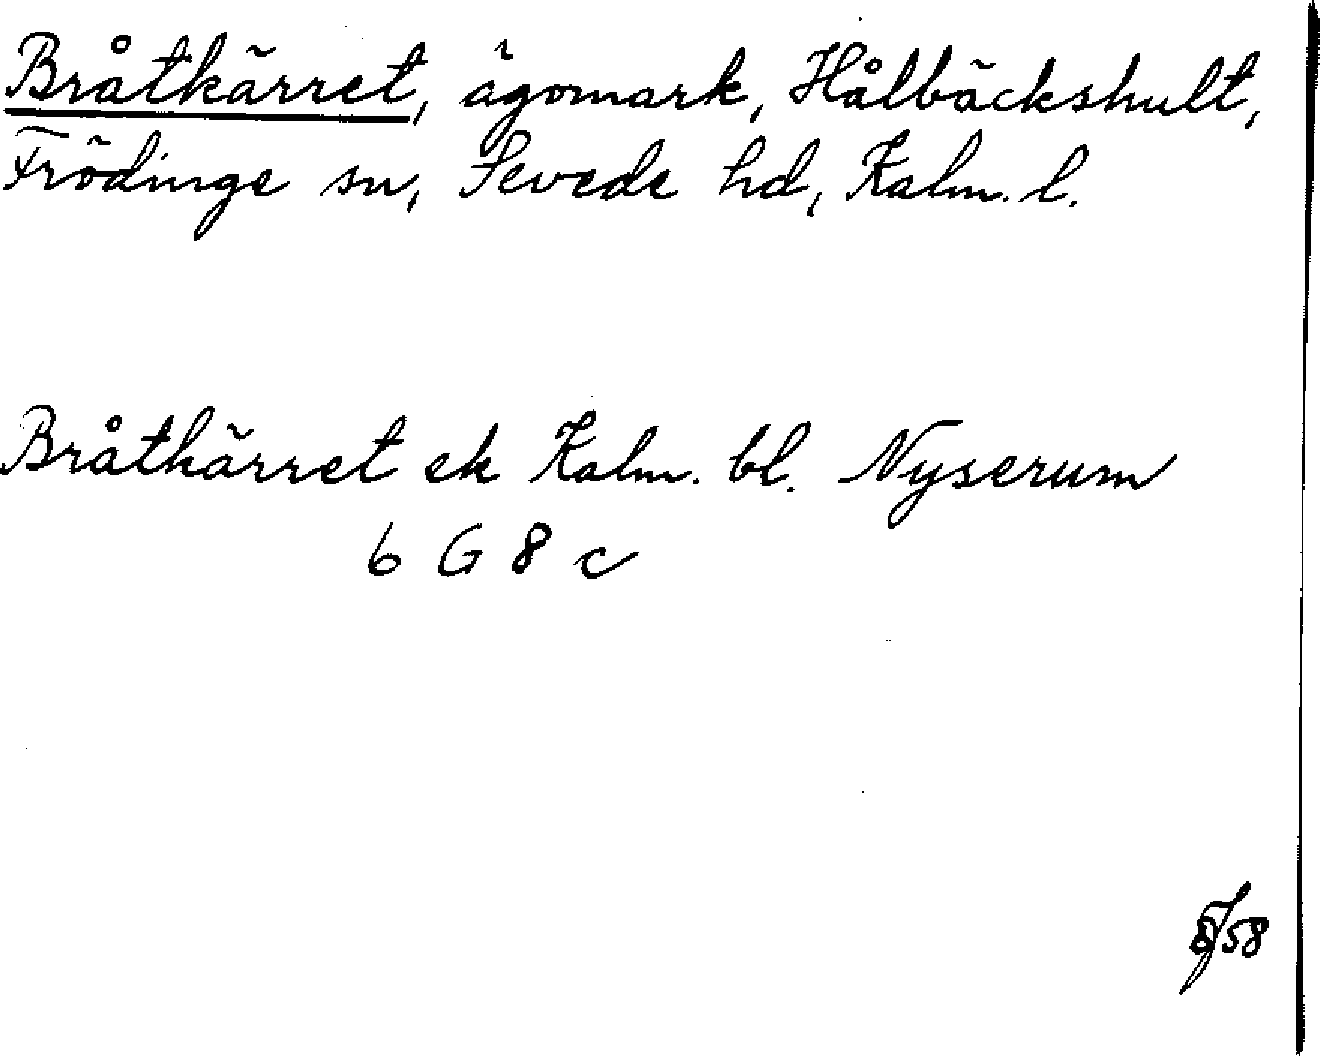 Bråtkärret, ägomark, Hålbäckshult,
Frödinge sn, Sevede hd, Kalm. l.
Bråtkärret ek Kalm. bl. Nyserum
6 G 8 c
58